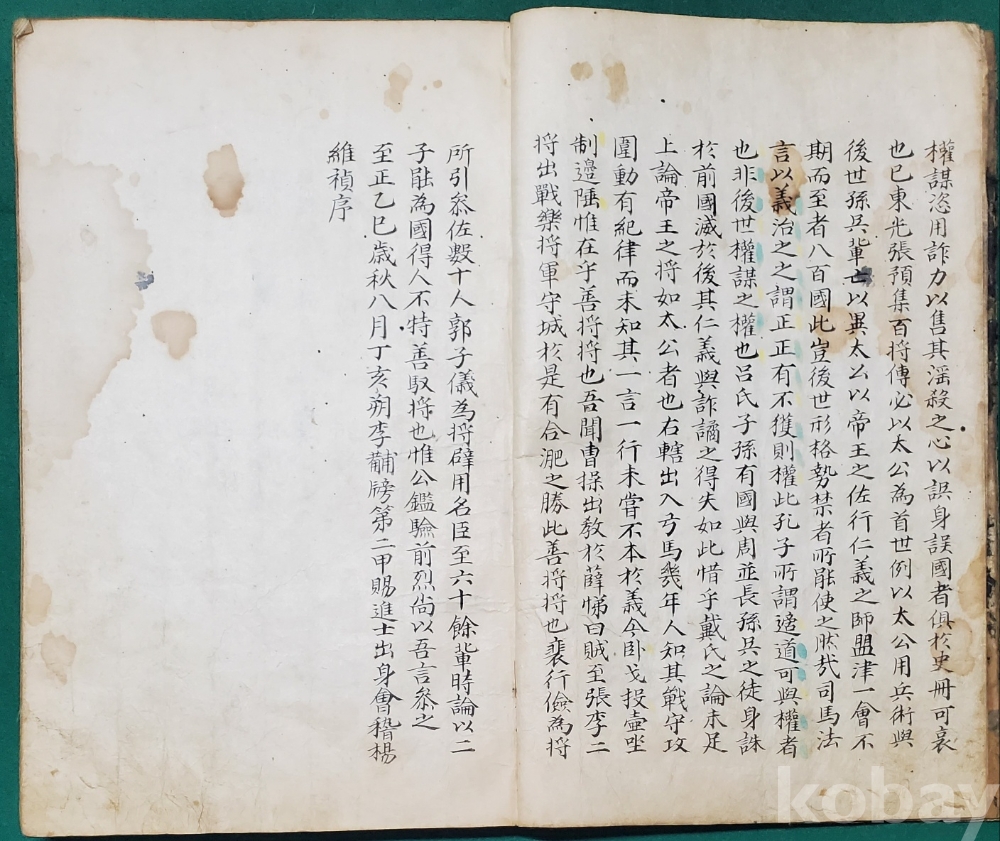 權謀恣用詐力以售其滛殺之心以誤身誤國者俱於史冊可哀
也已東光張預集百將傳必以太公為首世例以太公用兵術與
後世孫吳軰亡以異太公以帝王之佐行仁義之師盟津一會不
期而至者八百國此豈後世形格勢禁者所能使之然哉司馬法
言以義治之之謂正正有不獲則權此孔子所謂適道可與權者
也非後世權謀之權也呂氏子孫有國與周並長孫吳之徒身誅
於前國滅於後其仁義與詐譎之得失如此惜乎戴氏之論未足
上論帝王之将如太公者也右轄出入弓馬幾年人知其戰守攻
圍動有紀律而未知其一言一行未嘗不本於義今卧戈投壷唑
制邊陲惟在乎善将将也吾聞曹操出敎於薛悌曰賊至張李二
将出戰樂将軍守城於是有合淝之勝此善将将也裴行儉為将
所引叅佐數十人郭子儀為将辟用名臣至六十餘軰時論以二
子能為國得人不特善馭将也惟公鑑驗前烈尚以吾言叅之
至正乙巳歲秋八月丁亥朔李黼牓第二甲賜進士出身會稽楊
維禎序
kobay